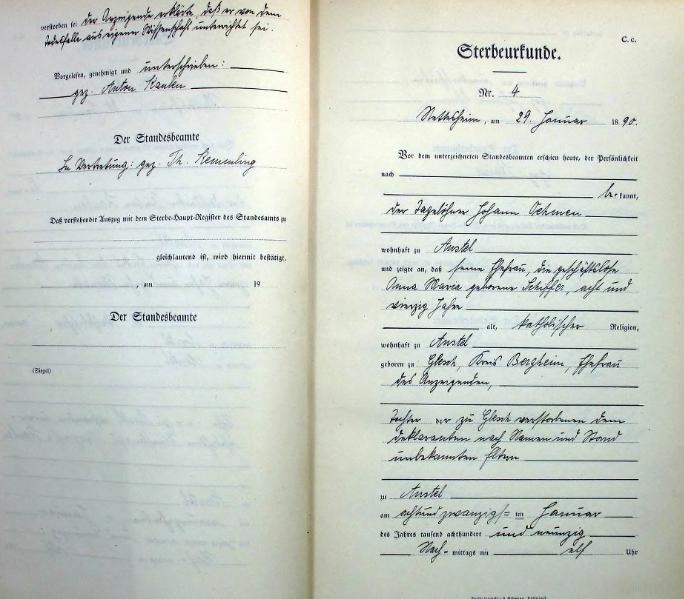 verstorben sei der Anzeigende erklärte, daß er von dem
Todesfalle aus eigener Wissenschaft unterrichtet sei.
Vorgelesen, genehmigt und unterschrieben:
gez. Anton
Der Standesbeamte
In Vertretung: gez. Th. Kemmerling
Daß vorstehender Auszug mit dem Sterbe-Haupt-Register des Standesamts zu
gleichlautend ist, wird hiermit bestätigt.
, am 19
Der Standesbeamte
(Siegel)
C. c.
Sterbeurkunde.
Nr. 4
Nettesheim, am 29. Januar 1890.
Vor dem unterzeichneten Standesbeamten erschien heute, der Persönlichkeit
nach
bekannt,
der Tagelöhner Johann Oehmen
wohnhaft zu Anstel
und zeigte an, daß seine Ehefrau, die geschäftslose
Anna Maria geborene Schiffer, acht und
vierzig Jahre
alt, katholischer Religion,
wohnhaft zu Anstel
geboren zu Glesch, Kreis Bergheim, Ehefrau
des Anzeigenden,
Tochter der zu Glesch verstorbenen dem
Deklaranten nach Namen und Stand
unbekannten Eltern
zu Anstel
am achtundzwanzigsten Januar
des Jahres tausend achthundert und neunzig
Nach-mittags um elf Uhr